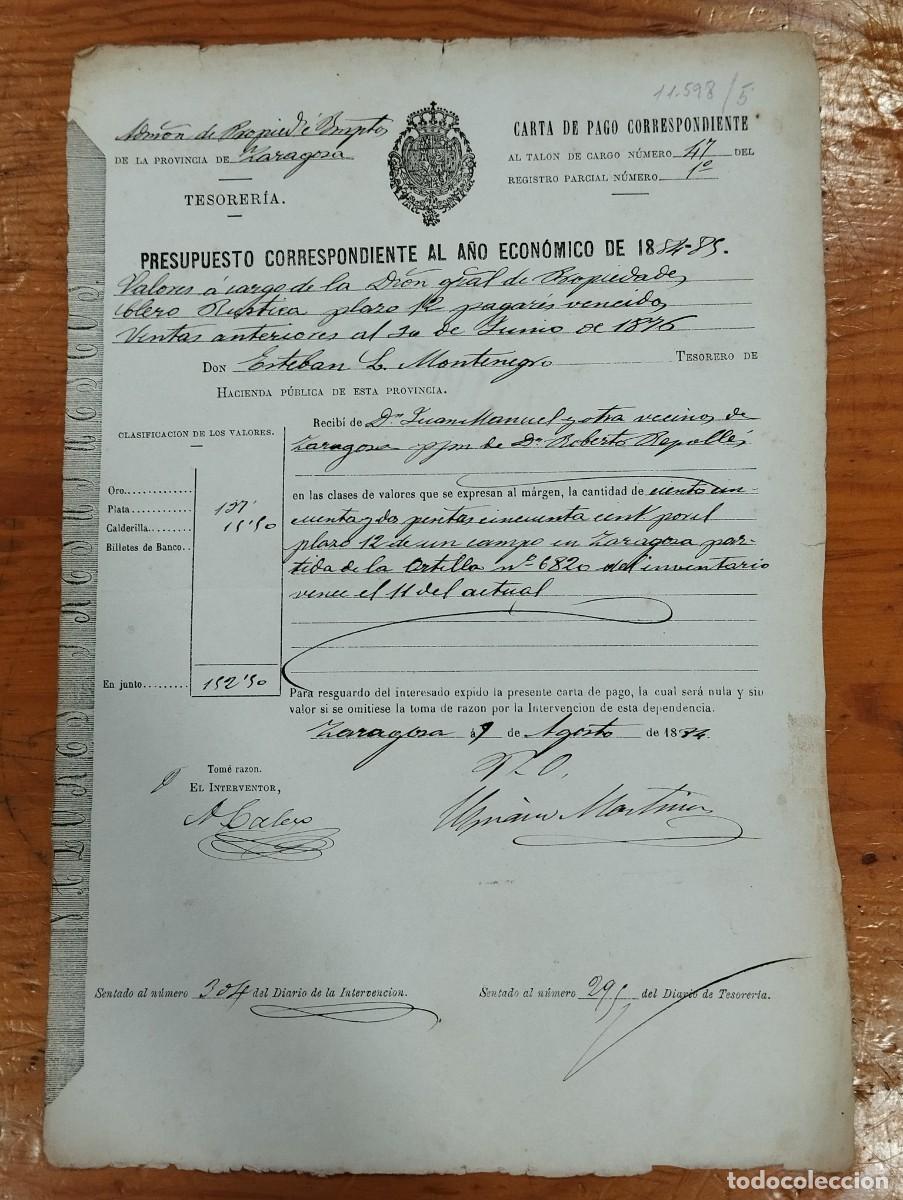 11.598/5
Admón de Propied é Imptos
DE LA PROVINCIA DE Zaragoza
TESORERÍA.
CARTA DE PAGO CORRESPONDIENTE
AL TALON DE CARGO NÚMERO 47 DEL
REGISTRO PARCIAL NÚMERO 1º
PRESUPUESTO CORRESPONDIENTE AL AÑO ECONÓMICO DE 1884-85.
Valores á cargo de la Dión gral de Propiedades
Clero Rústica plazo 12 pagarés vencidos
Ventas anteriores al 30 de Junio de 1876
DON Esteban L. Montenegro TESORERO DE
HACIENDA PÚBLICA DE ESTA PROVINCIA.
CLASIFICACION DE LOS VALORES.
Oro
Plata 137'
Calderilla 15'50
Billetes de Banco
En junto 152'50
Recibí de Dn Juan Manuel y otra vecinos de
Zaragoza p/m de Dn Roberto Repollés
en las clases de valores que se expresan al márgen, la cantidad de ciento cin-
cuenta y dos pesetas cincuenta cent por el
plazo 12 de un campo en Zaragoza par-
tida de la Ortilla nº 6820 del inventario
vence el 11 del actual
Para resguardo del interesado expido la presente carta de pago, la cual será nula y sin
valor si se omitiese la toma de razon por la Intervencion de esta dependencia.
Zaragoza á 9 de Agosto de 1884.
P.O.
Tomé razon.
EL INTERVENTOR,
Martinez
Sentado al número 304 del Diario de la Intervencion.
Sentado al número 295 del Diario de Tesorería.
todocoleccion